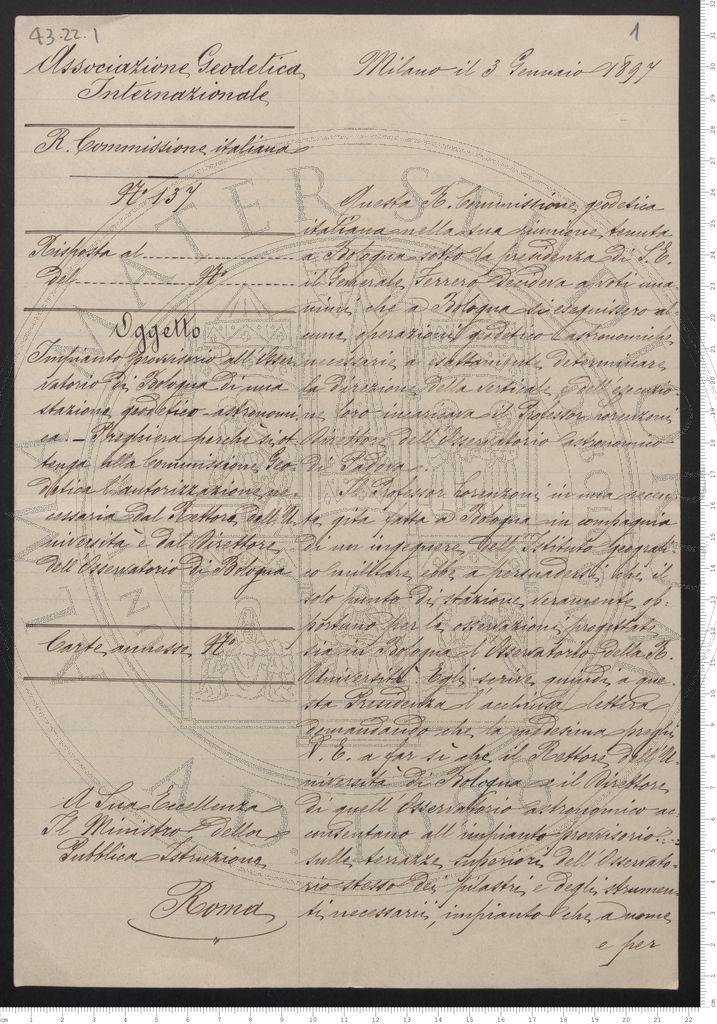 43.22.1
1
Associazione Geodetica
Internazionale
R. Commissione italiana
N.º 137
Risposta al
del N.º
Oggetto
Impianto provvisorio all'Osser-
vatorio di Bologna di una
stazione geodetico-astronomi-
ca. - Preghiera perchè si ot-
tenga alla Commissione Geo-
detica l'autorizzazione ne-
cessaria dal Rettore dell'U-
niversità e dal Direttore
dell'Osservatorio di Bologna
Carte annesse N.º
A Sua Eccellenza
Il Ministro della
Pubblica Istruzione
Roma
Milano il 3 Gennaio 1897
Questa R. Commissione geodetica
italiana nella sua riunione tenuta
a Bologna sotto la presidenza di S. E.
il Generale Ferrero decideva a voti una-
nimi che a Bologna si eseguissero al-
cune operazioni geodetico astronomiche
necessarie a esattamente determinare
la direzione della verticale, e dell'esecuzio-
ne loro incaricava il Professor Lorenzoni
Direttore dell'Osservatorio Astronomico
di Padova.
Il Professor Lorenzoni in una recen-
te gita fatta a Bologna in compagnia
di un ingegnere dell'Istituto Geografi-
co militare ebbe a persuadersi che il
solo punto di stazione veramente op-
portuno per le osservazioni progettate
sia in Bologna l'Osservatorio della R.
Università. Egli scrive quindi a que-
sta Presidenza l'acclusa lettera
domandando che la medesima preghi
V. E. a far sì che il Rettore dell'U-
niversità di Bologna e il Direttore
di quell'Osservatorio astronomico ac-
consentano all'impianto provvisorio
sulle terrazze superiori dell'Osservato-
rio stesso dei pilastri e degli strumen-
ti necessarii, impianto che a nome
e per
ALMA MATER STUDIORUM
A.D. 1088